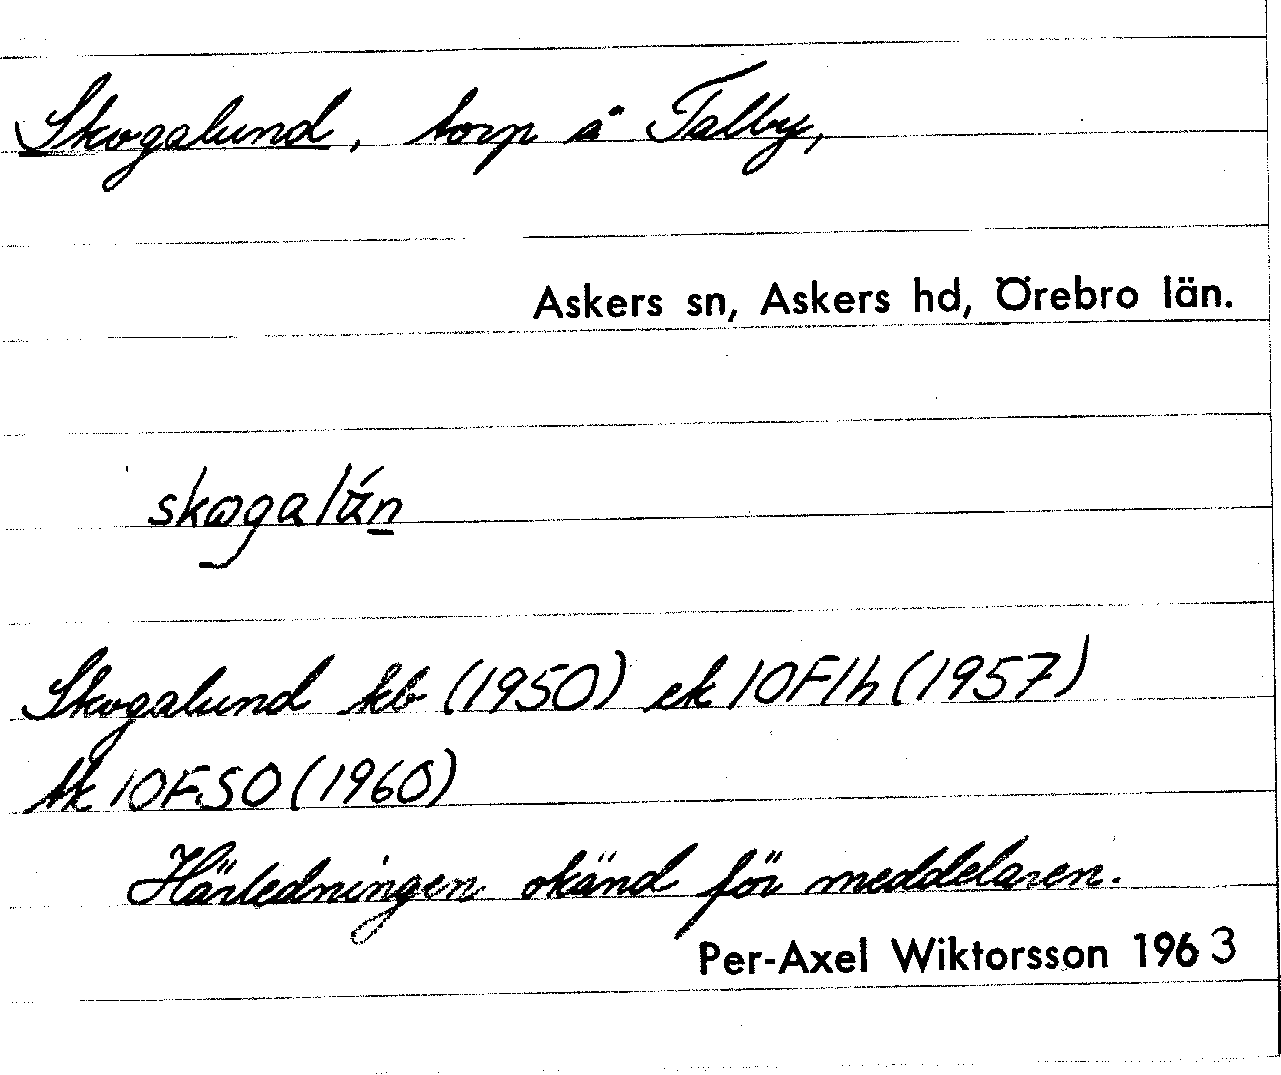 Skogalund, torp å Talby,
Askers sn, Askers hd, Örebro län.
Skogalund kb (1950) ek 10F1h (1957)
tk 10F SO (1960)
Härledningen okänd för meddelaren.
Per-Axel Wiktorsson 1963